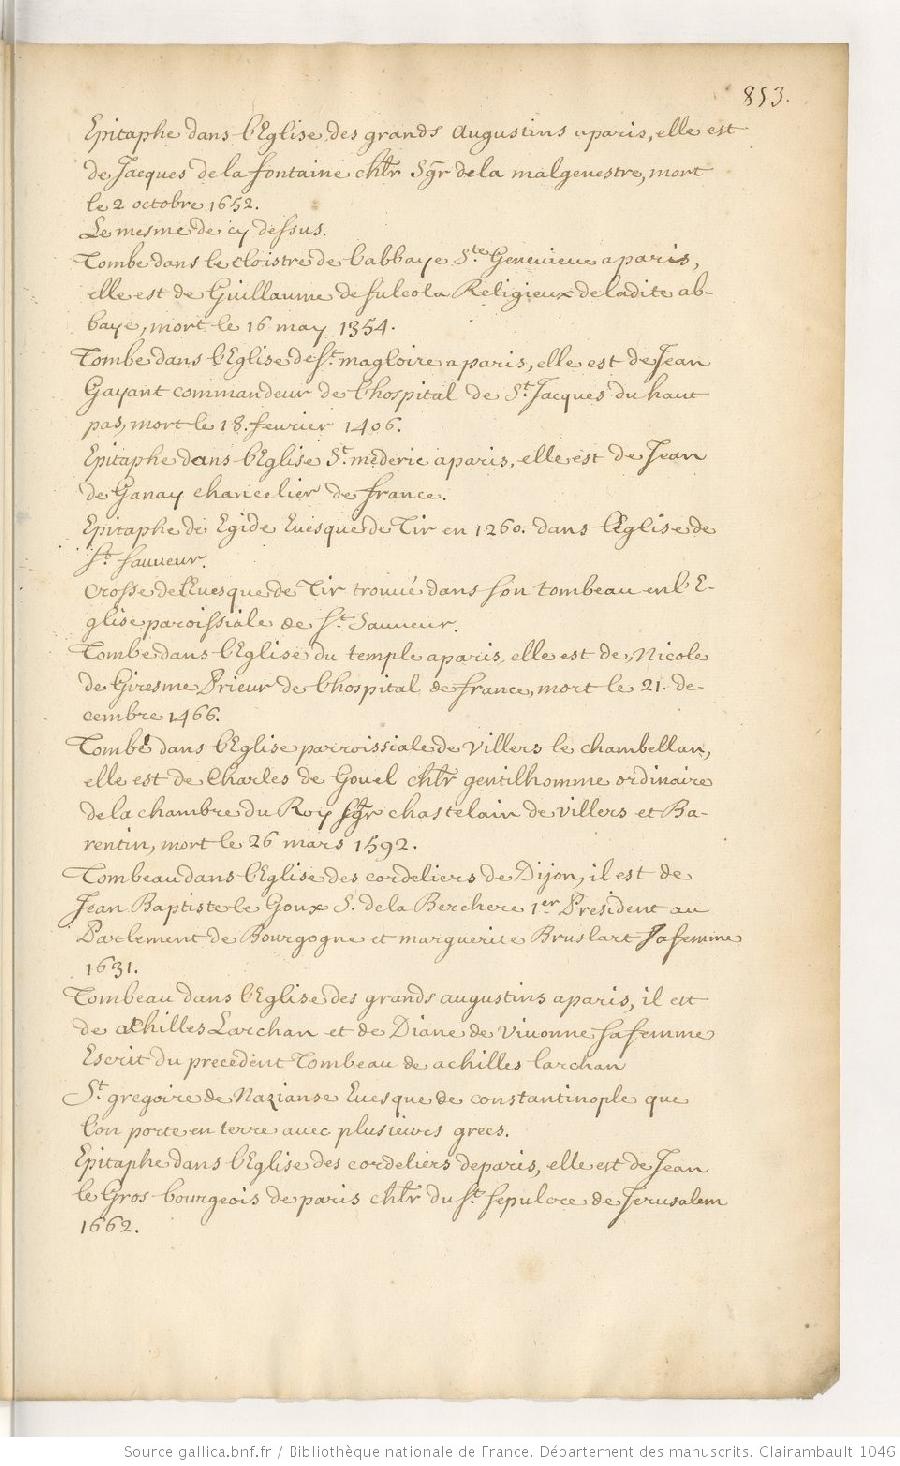 853.
Epitaphe dans l'Eglise des grands Augustins a paris, elle est
de Jacques de la fontaine chlr Sgr de la malgenestre, mort
le 2 octobre 1652.
Le mesme de cy dessus.
Tombe dans le cloistre de l'abbaye Ste Genevieve a paris,
elle est de Guillaume de sulcola Religieux de ladite ab-
baye, mort le 16 may 1354.
Tombe dans l'Eglise de St magloire a paris, elle est de Jean
Gayant commandeur de l'hospital de St Jacques du haut
pas, mort le 18. fevrier 1406.
Epitaphe dans l'Eglise St mederic a paris, elle est de Jean
de Ganay chancelier de france.
Epitaphe de Egide Evesque de Tir en 1260. dans l'Eglise de
St sauveur.
Crosse de l'Evesque de Tir trouvé dans son tombeau en l'E-
glise paroissiale de St Sauveur.
Tombe dans l'Eglise du temple a paris, elle est de Nicole
de Giresme Prieur de l'hospital de france, mort le 21. de-
cembre 1466.
Tombe dans l'Eglise parroissiale de villers le chambellan,
elle est de Charles de Gouel chlr gentilhomme ordinaire
de la chambre du Roy Sgr chastelain de villers et Ba-
rentin, mort le 26 mars 1592.
Tombeau dans l'Eglise des cordeliers de Dijon, il est de
Jean Baptiste le Goux S. de la Berchere 1er President au
Parlement de Bourgogne et marguerite Bruslart sa femme
1631.
Tombeau dans l'Eglise des grands augustins a paris, il est
de achilles Larchan et de Diane de Vivonne sa femme
Escrit du precedent Tombeau de achilles larchan
St gregoire de Nazianse Evesque de constantinople que
l'on porte en terre avec plusieurs grecs.
Epitaphe dans l'Eglise des cordeliers de paris, elle est de Jean
le Gros bourgeois de paris chlr du St sepulcre de Jerusalem
1662.
Source gallica.bnf.fr / Bibliothèque nationale de France. Département des manuscrits. Clairambault 1046